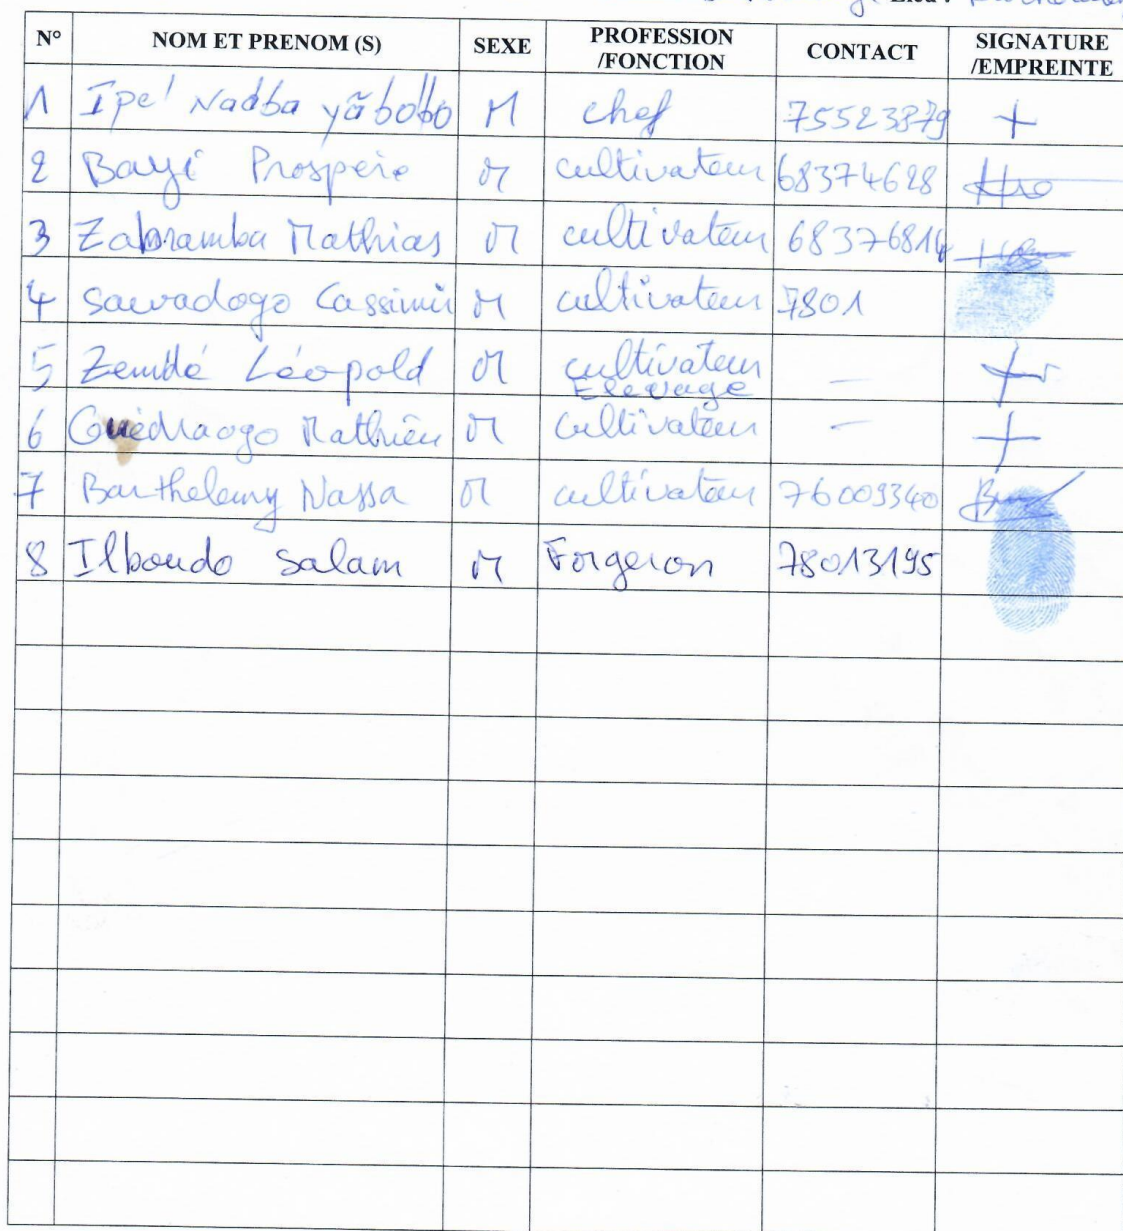 Lieu :
N° NOM ET PRENOM (S) SEXE PROFESSION /FONCTION CONTACT SIGNATURE /EMPREINTE
1 Ipe' Nadba yãbobo M chef 75523879 +
2 Bayi Prospère M cultivateur 68374628
3 Zabramba Mathias M cultivateur 68376814
4 Sawadogo Cassimir M cultivateur 7801
5 Zemdé Léopold M cultivateur Elevage —
6 Ouédraogo Mathieu M cultivateur — +
7 Barthelemy Nassa M cultivateur 76009340
8 Ilboudo Salam M Forgeron 78013195